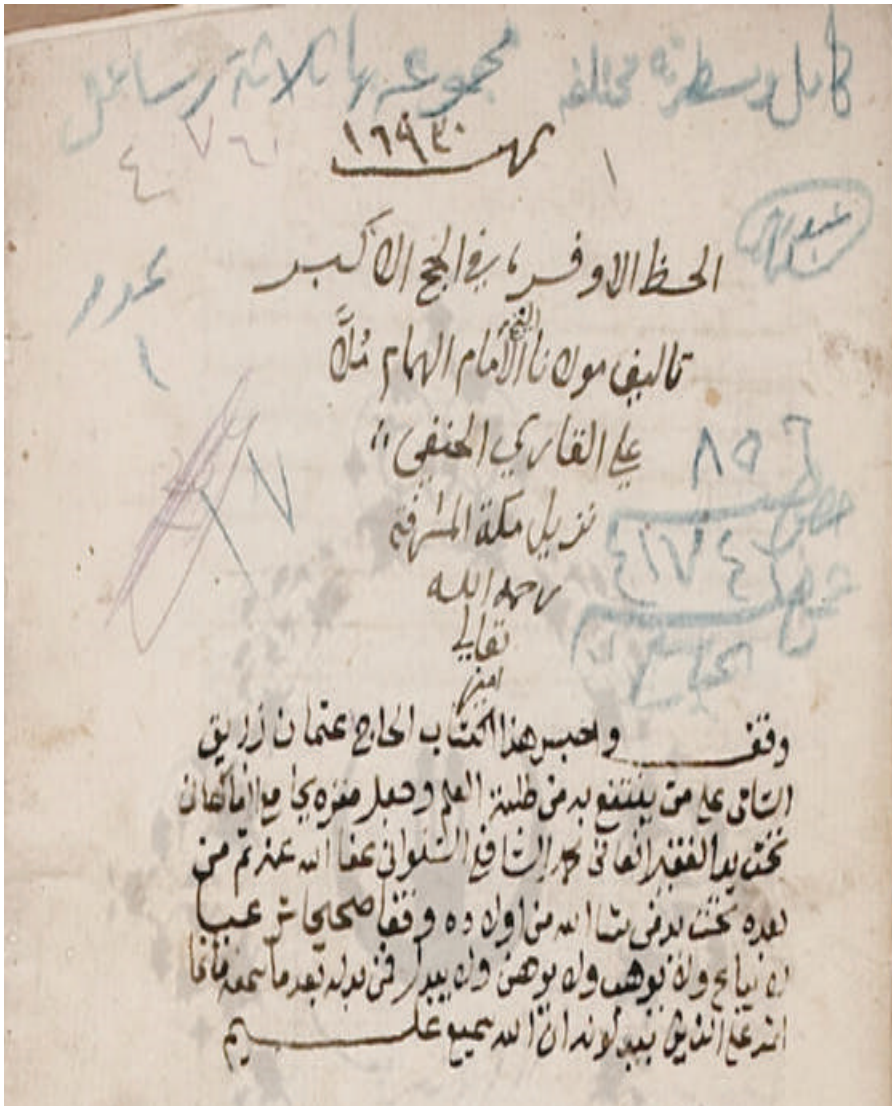 كامل ومسطرته مختلفه مجموعه بها ثلاثة رسائل
١٦٩٣٠
٧٦٠
٤
١
الحظ الاوفر في الحج الاكبر
١
تاليف مولانا الشيخ الأمام الهمام مُلَّا
علي القاري الحنفي
٨٥٦
١٧
نزيل مكة المشرفة
٤١٧٤
رحمه الله
تعالى
امين
وقف واحبس هذا الكتاب الحاج عثمان زريق
على من ينتفع به من طلبة العلم وجعل مقره بجامع
تحت يد الفقير الشافعي عفا الله عنه ثم من
بعده تحت يد من شا الله من اولاده وقفا صحيحا شرعيا
لا يباع ولا يوهب ولا يرهن ولا يبدل فمن بدله بعد ما سمعه فانما
اثمه على الذين يبدلونه ان الله سميع عليم